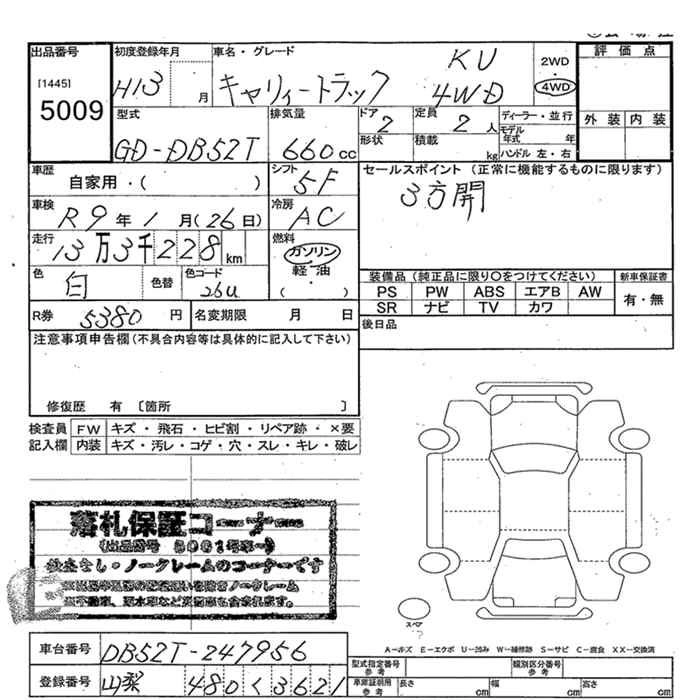 出品番号 初度登録年月 車名・グレード 評価点
[1445] H13 月 キャリイートラック KU 4WD 2WD・4WD
5009
型式 排気量 ドア 定員 ディーラー・並行 外装 内装
GD-DB52T 660cc 2 2人 モデル年式 年
形状 積載 kg ハンドル 左・右
車歴 自家用・( ) シフト 5F セールスポイント(正常に機能するものに限ります)
3方開
車検 R9年1月(26日) 冷房 AC
走行 13万3千228km 燃料 ガソリン
軽油
・( )
色 白 色替 色コード 26U
装備品(純正品に限り○をつけてください) 新車保証書
PS PW ABS エアB AW 有・無
SR ナビ TV カワ
R券 5380円 名変期限 月 日 後日品
注意事項申告欄(不具合内容等は具体的に記入して下さい)
修復歴 有 〔箇所 〕
検査員 FW キズ・飛石・ヒビ割・リペア跡・×要
記入欄 内装 キズ・汚レ・コゲ・穴・スレ・キレ・破レ
落札保証コーナー
・ノークレームのコーナーです
スペア
A-キズ E-エクボ U-凹み W-補修跡 S-サビ C-腐食 XX-交換済
車台番号 DB52T-247956 型式指定番号 参考 類別区分番号 参考
登録番号 山梨 480く3621 車庫証明用 参考 長さ cm 幅 cm 高さ cm